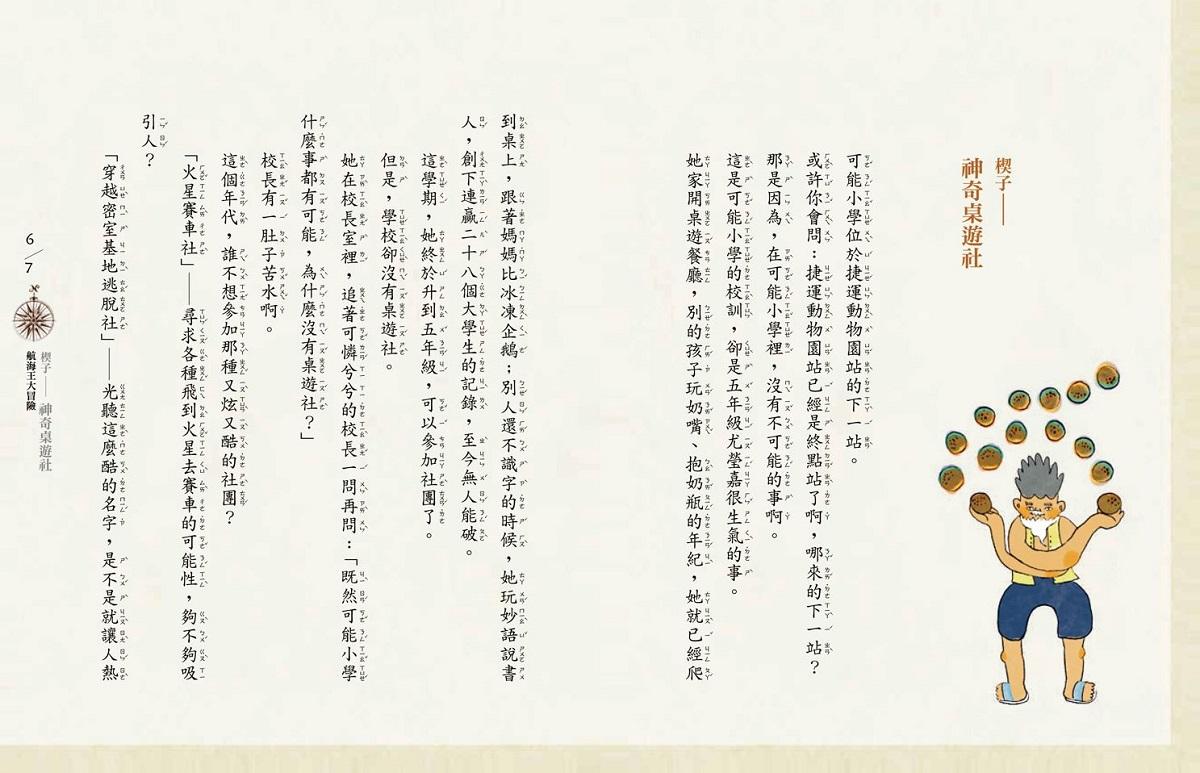 楔子——
神奇桌遊社
可能小學位於捷運動物園站的下一站。
或許你會問：捷運動物園站已經是終點站了啊，哪來的下一站？
那是因為，在可能小學裡，沒有不可能的事啊。
這是可能小學的校訓，卻是五年級尤瑩嘉很生氣的事。
她家開桌遊餐廳，別的孩子玩奶嘴、抱奶瓶的年紀，她就已經爬
到桌上，跟著媽媽比冰凍企鵝；別人還不識字的時候，她玩妙語說書
人，創下連贏二十八個大學生的記錄，至今無人能破。
這學期，她終於升到五年級，可以參加社團了。
但是，學校卻沒有桌遊社。
她在校長室裡，追著可憐兮兮的校長一問再問：「既然可能小學
什麼事都有可能，為什麼沒有桌遊社？」
校長有一肚子苦水啊。
這個年代，誰不想參加那種又炫又酷的社團？
「火星賽車社」——尋求各種飛到火星去賽車的可能性，夠不夠吸
引人？
「穿越密室基地逃脫社」——光聽這麼酷的名字，是不是就讓人熱
6/7
楔子——神奇桌遊社
航海王大冒險